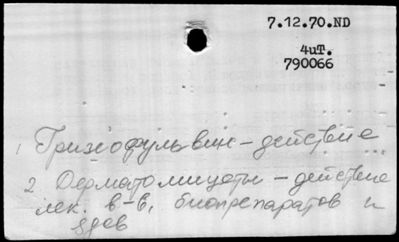 7.12.70.ND
4иТ.
790066
1 Гризеофульвин – действие
2 Дерматомицеты – действие
лек. в-в, биопрепаратов и
ядов